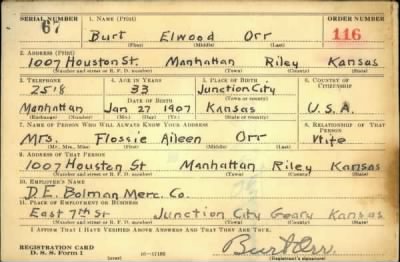 SERIAL NUMBER 1. NAME (Print) ORDER NUMBER
67 Burt Elwood Orr 116
(First) (Middle) (Last)
2. ADDRESS (Print)
1007 Houston St. Manhattan Riley Kansas
(Number and street or R. F. D. number) (Town) (County) (State)
3. TELEPHONE 4. AGE IN YEARS 5. PLACE OF BIRTH 6. COUNTRY OF CITIZENSHIP
2518 33 Junction City
DATE OF BIRTH (Town or county)
Manhattan Jan 27 1907 Kansas U.S.A.
(Exchange) (Number) (Mo.) (Day) (Yr.) (State or country)
7. NAME OF PERSON WHO WILL ALWAYS KNOW YOUR ADDRESS 8. RELATIONSHIP OF THAT PERSON
Mrs. Flossie Aileen Orr Wife
(Mr., Mrs., Miss) (First) (Middle) (Last)
9. ADDRESS OF THAT PERSON
1007 Houston St Manhattan Riley Kansas
(Number and street or R. F. D. number) (Town) (County) (State)
10. EMPLOYER'S NAME
D.E. Bolman Merc. Co.
11. PLACE OF EMPLOYMENT OR BUSINESS
East 7th St Junction City Geary Kansas
(Number and street or R. F. D. number) (Town) (County) (State)
I AFFIRM THAT I HAVE VERIFIED ABOVE ANSWERS AND THAT THEY ARE TRUE.
REGISTRATION CARD
D. S. S. Form 1 (over) 16-17105 Burt Orr